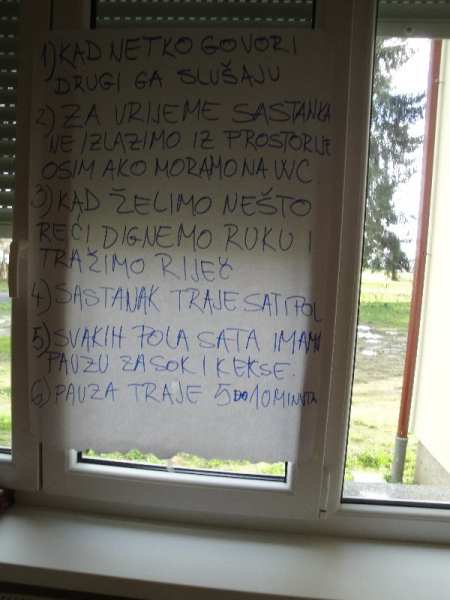 1) KAD NETKO GOVORI
DRUGI GA SLUŠAJU
2) ZA VRIJEME SASTANKA
NE IZLAZIMO IZ PROSTORIJE
OSIM AKO MORAMO NA WC
3) KAD ŽELIMO NEŠTO
REĆI DIGNEMO RUKU I
TRAŽIMO RIJEČ
4) SASTANAK TRAJE SAT I POL
5) SVAKIH POLA SATA IMAMO
PAUZU ZA SOK I KEKSE.
6) PAUZA TRAJE 5 DO 10 MINUTA